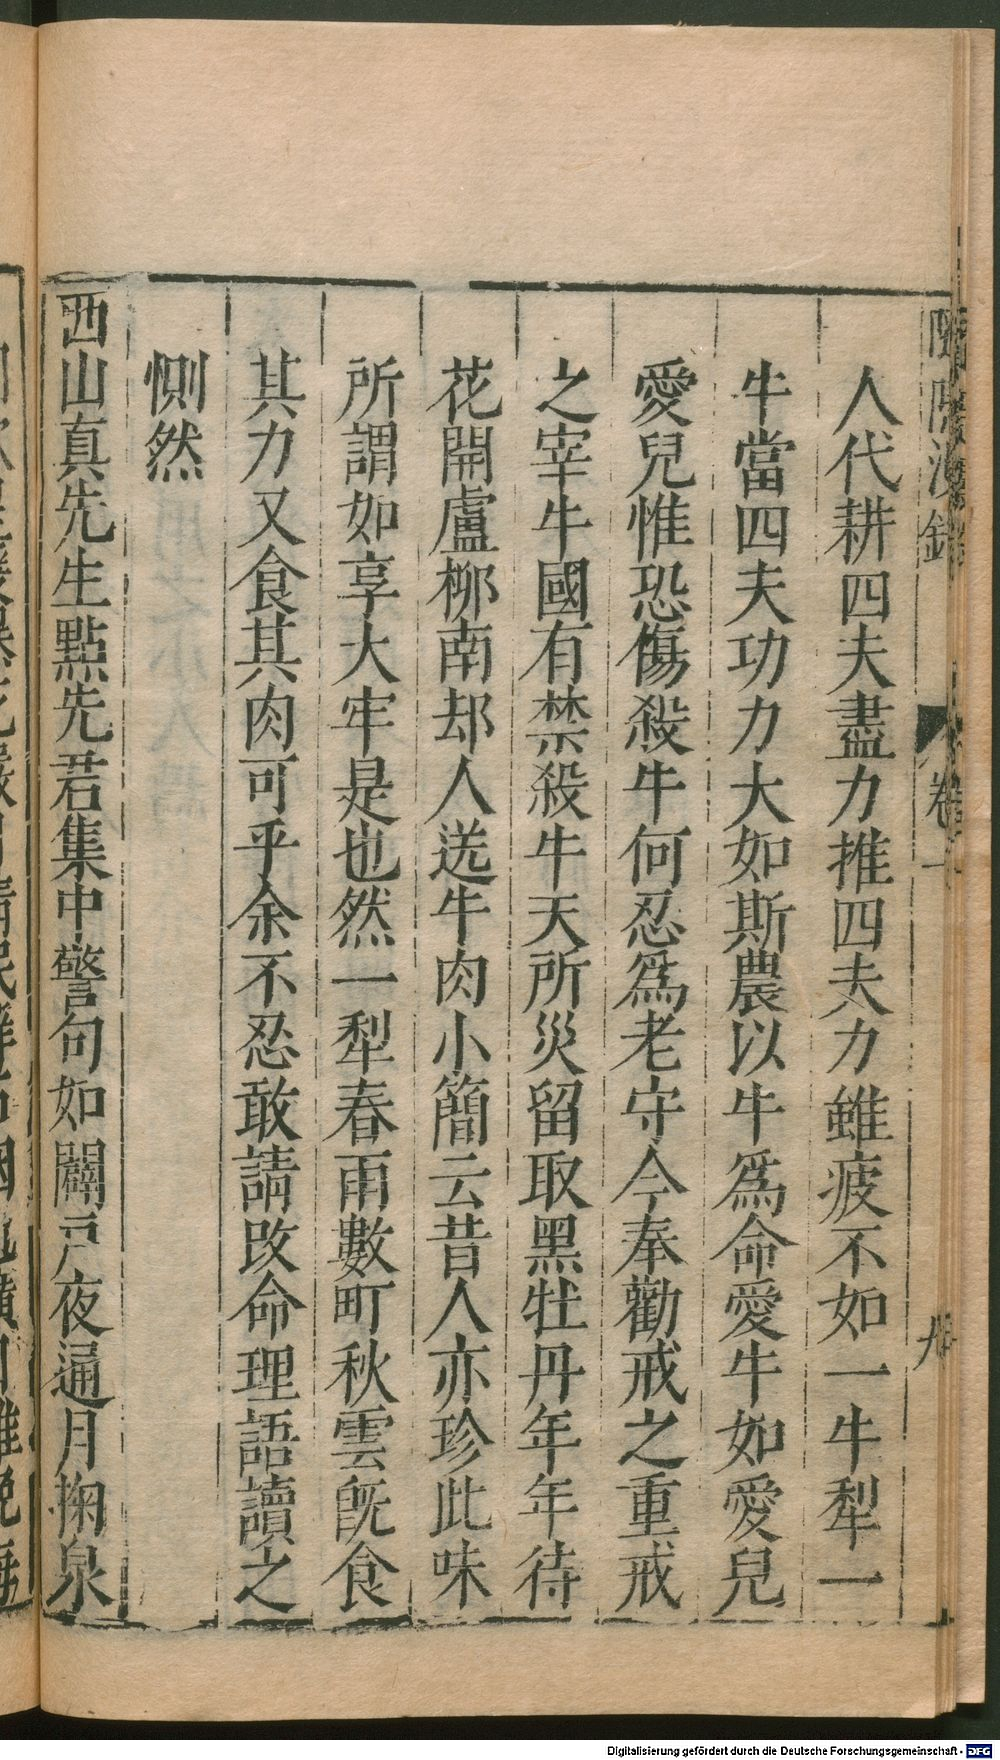 人代耕四夫盡力推四夫力雖疲不如一牛犁一
牛當四夫功力大如斯農以牛爲命愛牛如愛兒
愛兒惟恐傷殺牛何忍爲老守今奉勸戒之重戒
之宰牛國有禁殺牛天所災留取黑牡丹年年待
花開盧柳南却人送牛肉小簡云昔人亦珍此味
所謂如享大牢是也然一犁春雨數町秋雲旣食
其力又食其肉可乎余不忍敢請改命理語讀之
惻然
西山真先生點先君集中警句如闢戶夜通月掬泉
卷一
Digitalisierung gefördert durch die Deutsche Forschungsgemeinschaft - DFG